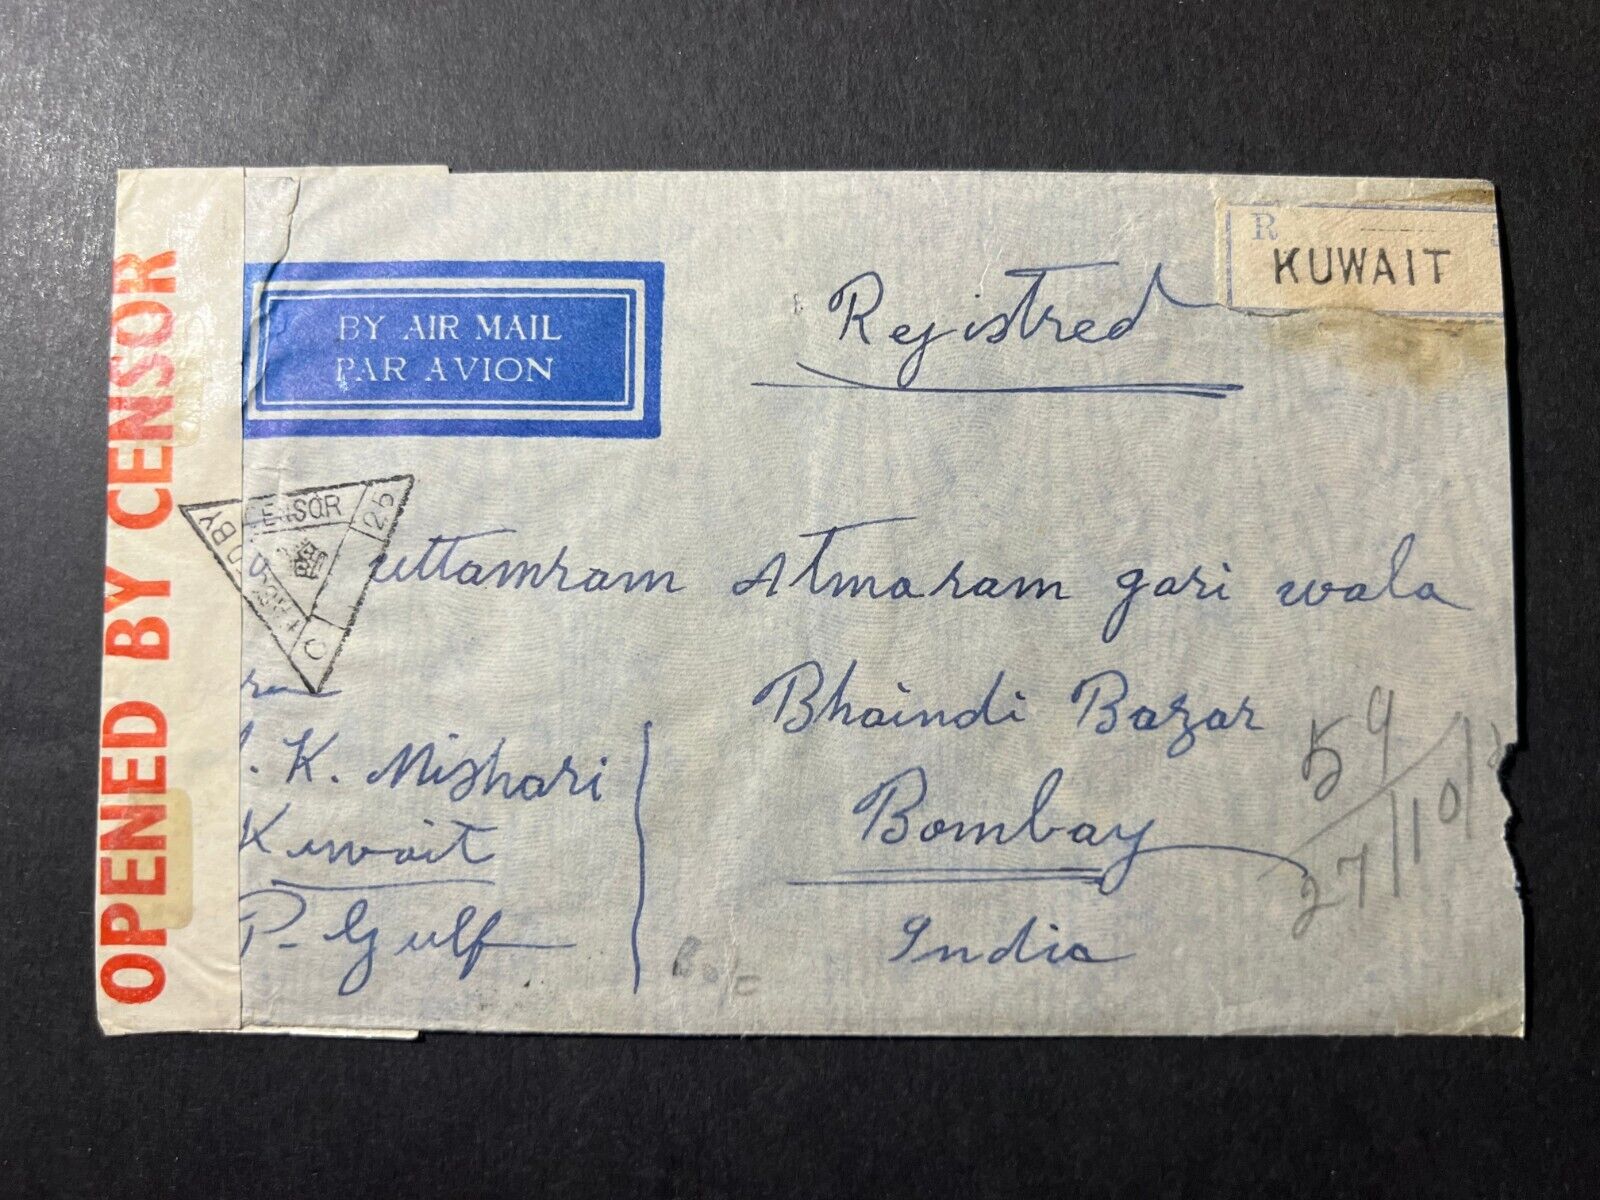 OPENED BY CENSOR
BY AIR MAIL
PAR AVION
Rejistred
R
KUWAIT
CENSOR
25
BY
uttamram Atmaram gari wala
Bhaindi Bazar
Bombay
India
K. Mishari
Kuwait
P. Gulf
59
27/10/